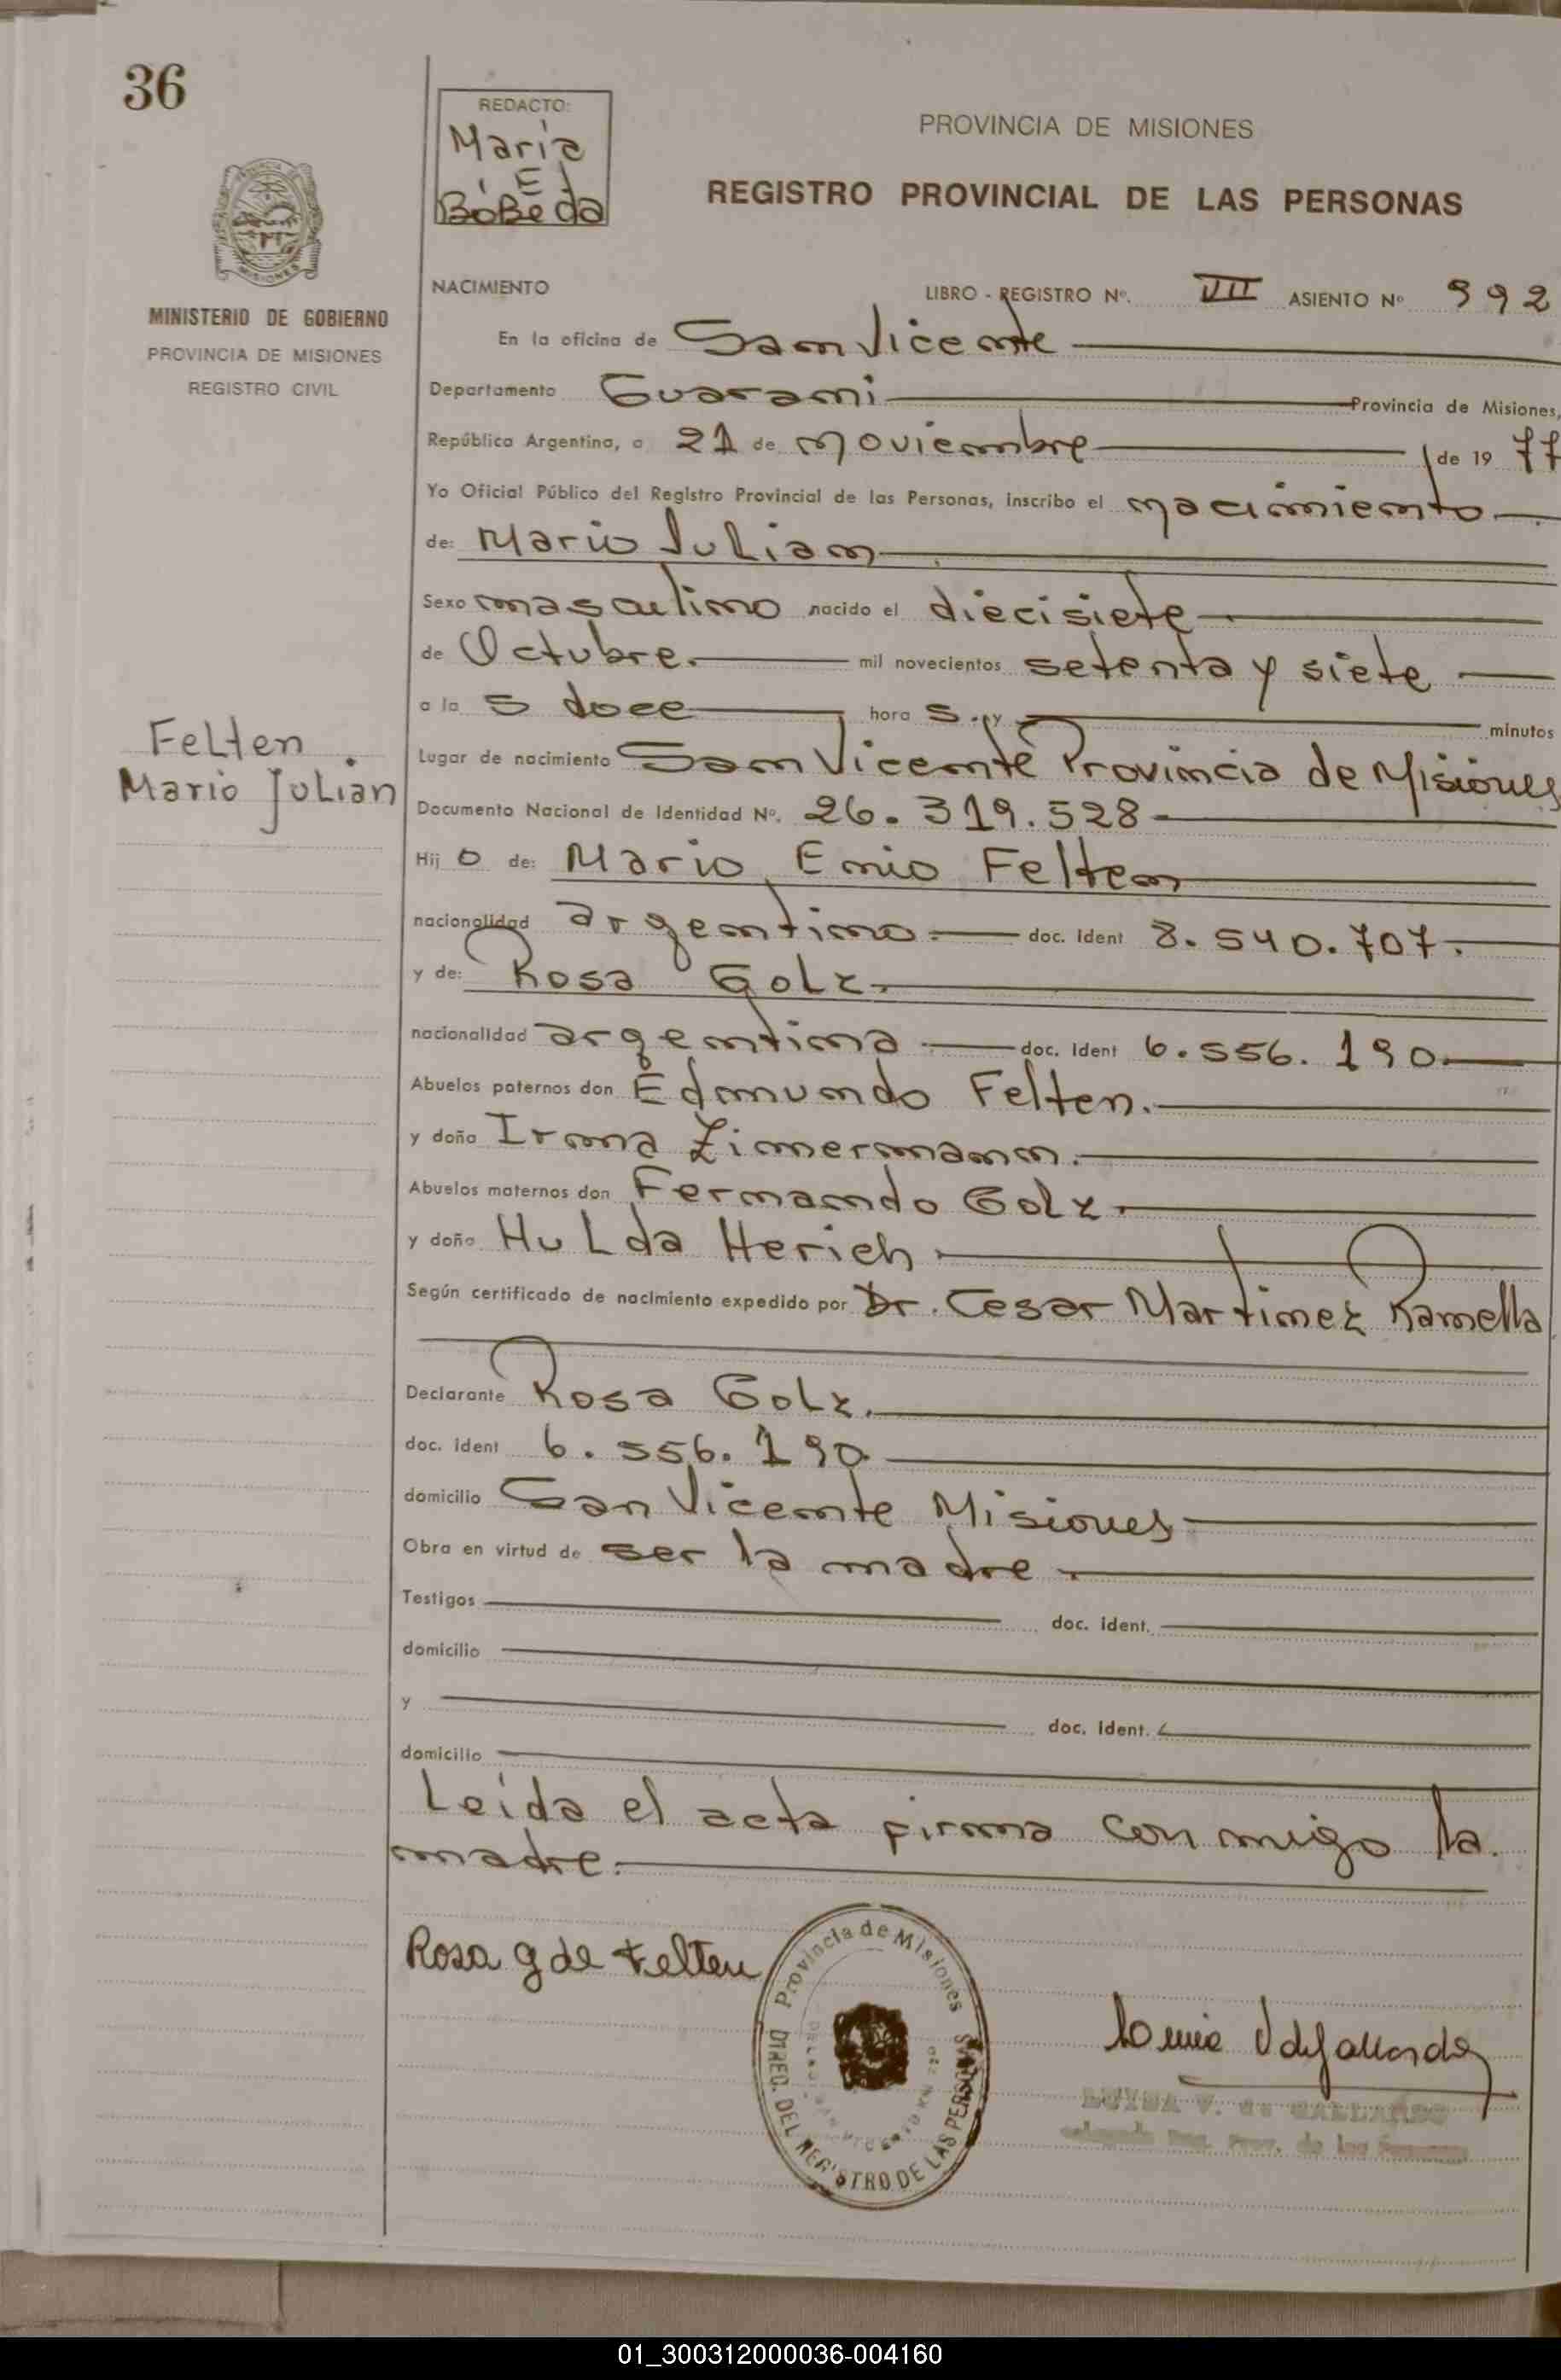 36
REDACTO:
Maria
E
BoBeda
PROVINCIA DE MISIONES
REGISTRO PROVINCIAL DE LAS PERSONAS
MINISTERIO DE GOBIERNO
PROVINCIA DE MISIONES
REGISTRO CIVIL
NACIMIENTO LIBRO - REGISTRO Nº. VII ASIENTO Nº 992
En la oficina de San Vicente
Departamento Guarani Provincia de Misiones,
República Argentina, a 21 de noviembre de 19 77
Yo Oficial Público del Registro Provincial de las Personas, inscribo el nacimiento
de: Mario Julian
Sexo masculino nacido el diecisiete
de Octubre. mil novecientos setenta y siete
a la s doce hora s. y minutos
Felten
Mario Julian
Lugar de nacimiento San Vicente Provincia de Misiones
Documento Nacional de Identidad Nº. 26.319.528
Hij o de: Mario Enio Felten
nacionalidad argentino. doc. ident 8.540.707.
y de: Rosa Golz.
nacionalidad argentina doc. ident 6.556.190
Abuelos paternos don Edmundo Felten.
y doña Irma Zimermann.
Abuelos maternos don Fernando Golz.
y doña Hulda Herich.
Según certificado de nacimiento expedido por Dr. Cesar Martinez Ramella
Declarante Rosa Golz.
doc. ident 6.556.190
domicilio San Vicente Misiones
Obra en virtud de ser la madre.
Testigos doc. ident.
domicilio
y doc. ident.
domicilio
Leida el acta firma con migo la
madre.
Rosa g de Felten
Provincia de Misiones
DIREC. DEL REGISTRO DE LAS PERSONAS
LUISA V. de GALLARDO